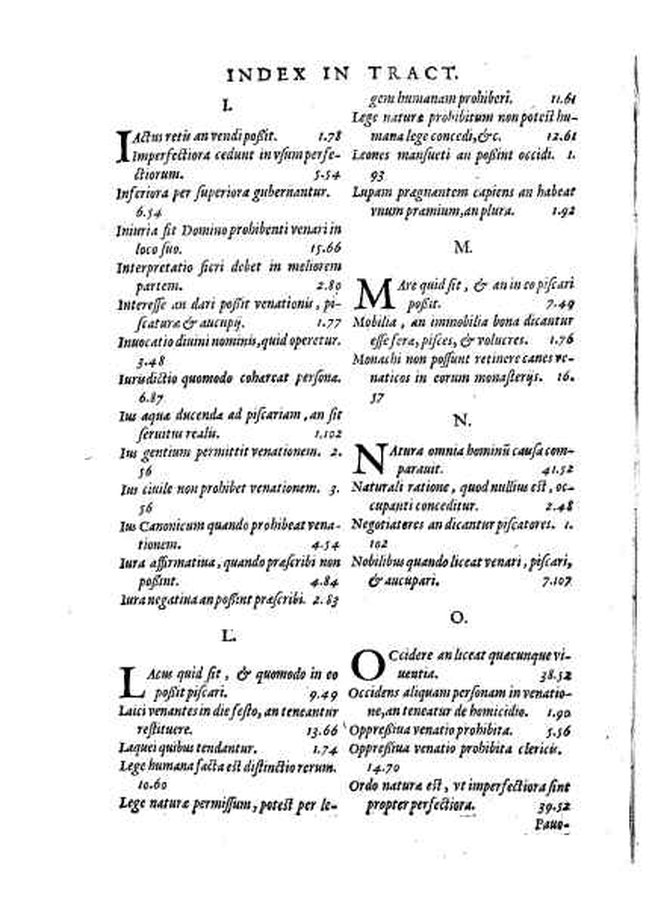 INDEX IN TRACT.
I.
IActus retis an vendi poßit. 1.78
Imperfectiora cedunt in vsum perfe-
ctiorum. 5.54
Inferiora per superiora gubernantur.
6.54
Iniuria fit Domino prohibenti venari in
loco suo. 15.66
Interpretatio fieri debet in meliorem
partem. 2.80
Interesse an dari poßit venationis, pi-
scaturæ & aucupij. 1.77
Inuocatio diuini nominis, quid operetur.
3.48
Iurisdictio quomodo cohæreat personæ.
6.87
Ius aquæ ducendæ ad piscariam, an sit
seruitus realis. 1.102
Ius gentium permittit venationem. 2.
56
Ius ciuile non prohibet venationem. 3.
56
Ius Canonicum quando prohibeat vena-
tionem. 4.54
Iura affirmatiua, quando præscribi non
poßint. 4.84
Iura negatiua an poßint præscribi. 2.83
L.
LAcus quid sit, & quomodo in eo
poßit piscari. 9.49
Laici venantes in die festo, an teneantur
restituere. 13.66
Laquei quibus tendantur. 1.74
Lege humana facta est distinctio rerum.
10.60
Lege naturæ permissum, potest per le-
gem humanam prohiberi. 11.61
Lege naturæ prohibitum non potest hu-
mana lege concedi, &c. 12.61
Leones mansueti an poßint occidi. 1.
93
Lupam prægnantem capiens an habeat
vnum præmium, an plura. 1.92
M.
MAre quid sit, & an in eo piscari
poßit. 7.49
Mobilia, an immobilia bona dicantur
esse feræ, pisces, & volucres. 1.76
Monachi non possunt retinere canes ve-
naticos in eorum monasterijs. 16.
57
N.
NAtura omnia hominū causa com-
parauit. 41.52
Naturali ratione, quod nullius est, oc-
cupanti conceditur. 2.48
Negotiatores an dicantur piscatores. 1.
102
Nobilibus quando liceat venari, piscari,
& aucupari. 7.107
O.
OCcidere an liceat quæcunque vi-
uentia. 38.52
Occidens aliquam personam in venatio-
ne, an teneatur de homicidio. 1.90
Oppreßiua venatio prohibita. 5.56
Oppreßiua venatio prohibita clericis.
14.70
Ordo naturæ est, vt imperfectiora sint
propter perfectiora. 39.52
Pauo-